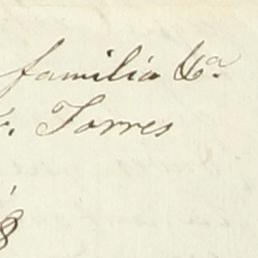 familia &a.
. Torres
8